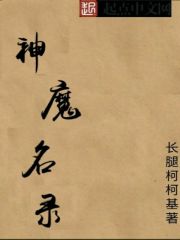 起点中文网
神魔名录
长腿柯柯基著